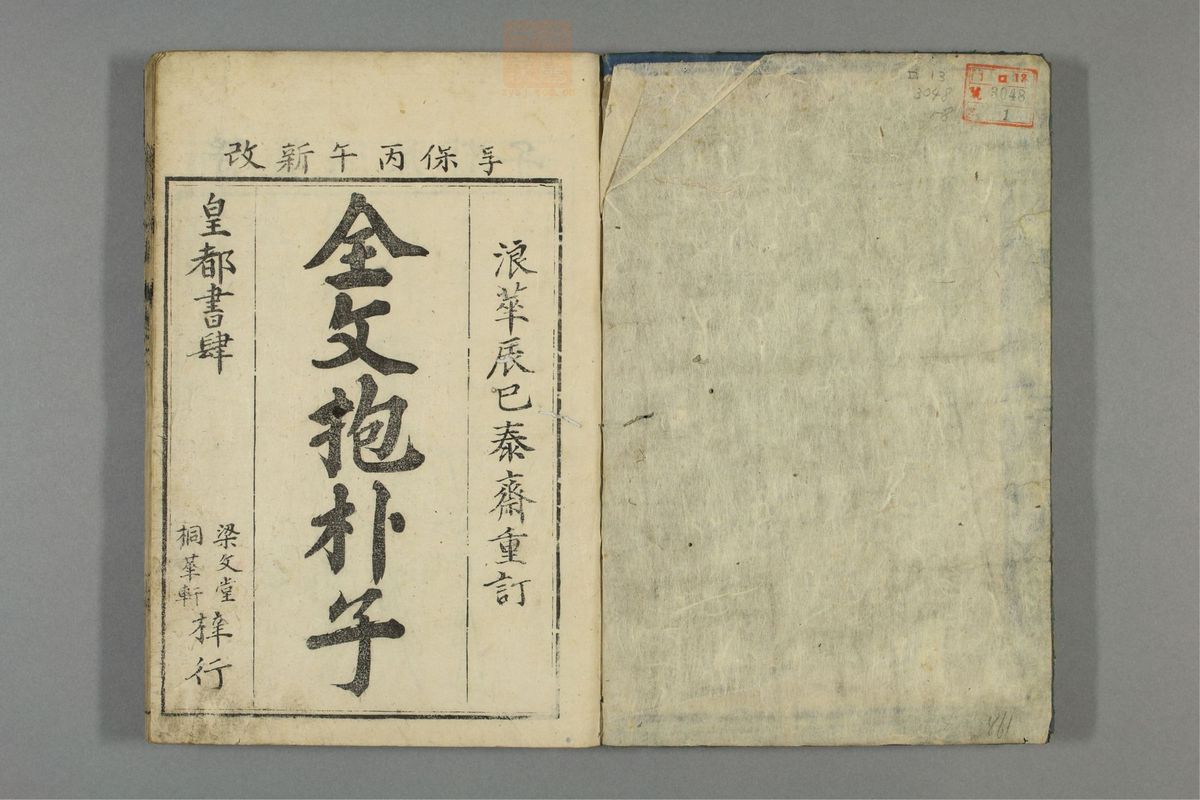 享保丙午新改
浪華辰巳泰齋重訂
全文抱朴子
皇都書肆
梁文堂
桐華軒
梓行
13
3048
18
3048
1